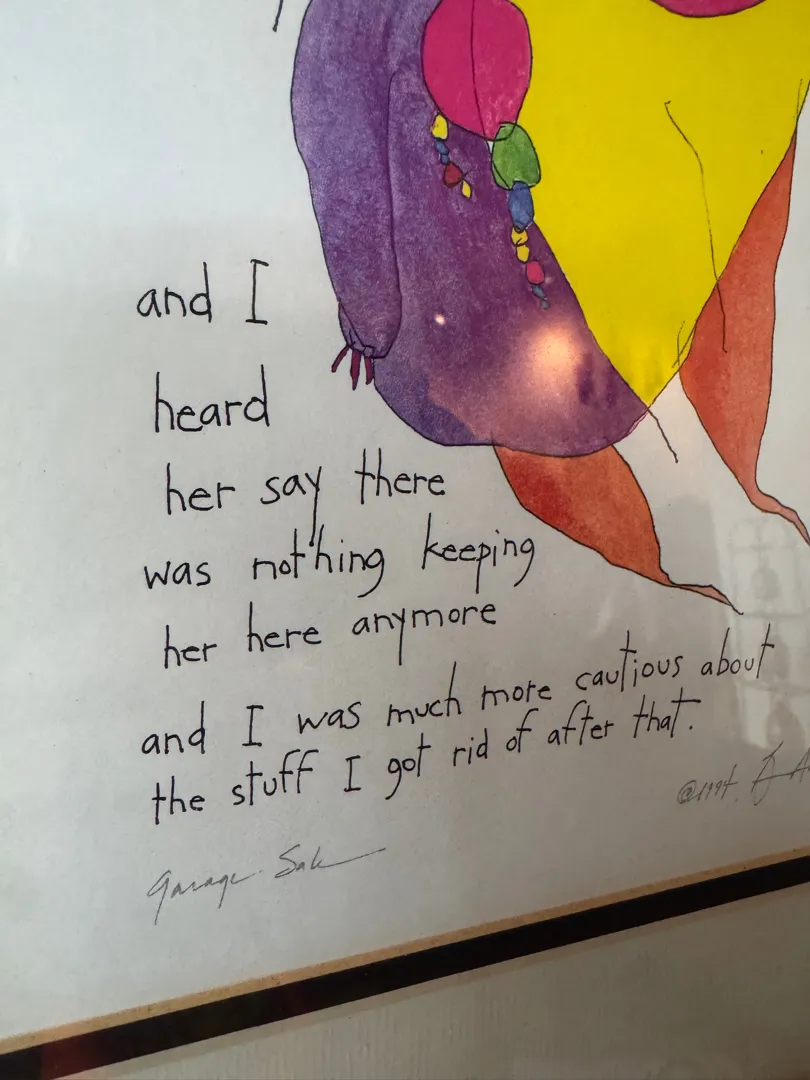 and I
heard
her say there
was nothing keeping
her here anymore
and I was much more cautious about
the stuff I got rid of after that.
@1994.
Garage Sale